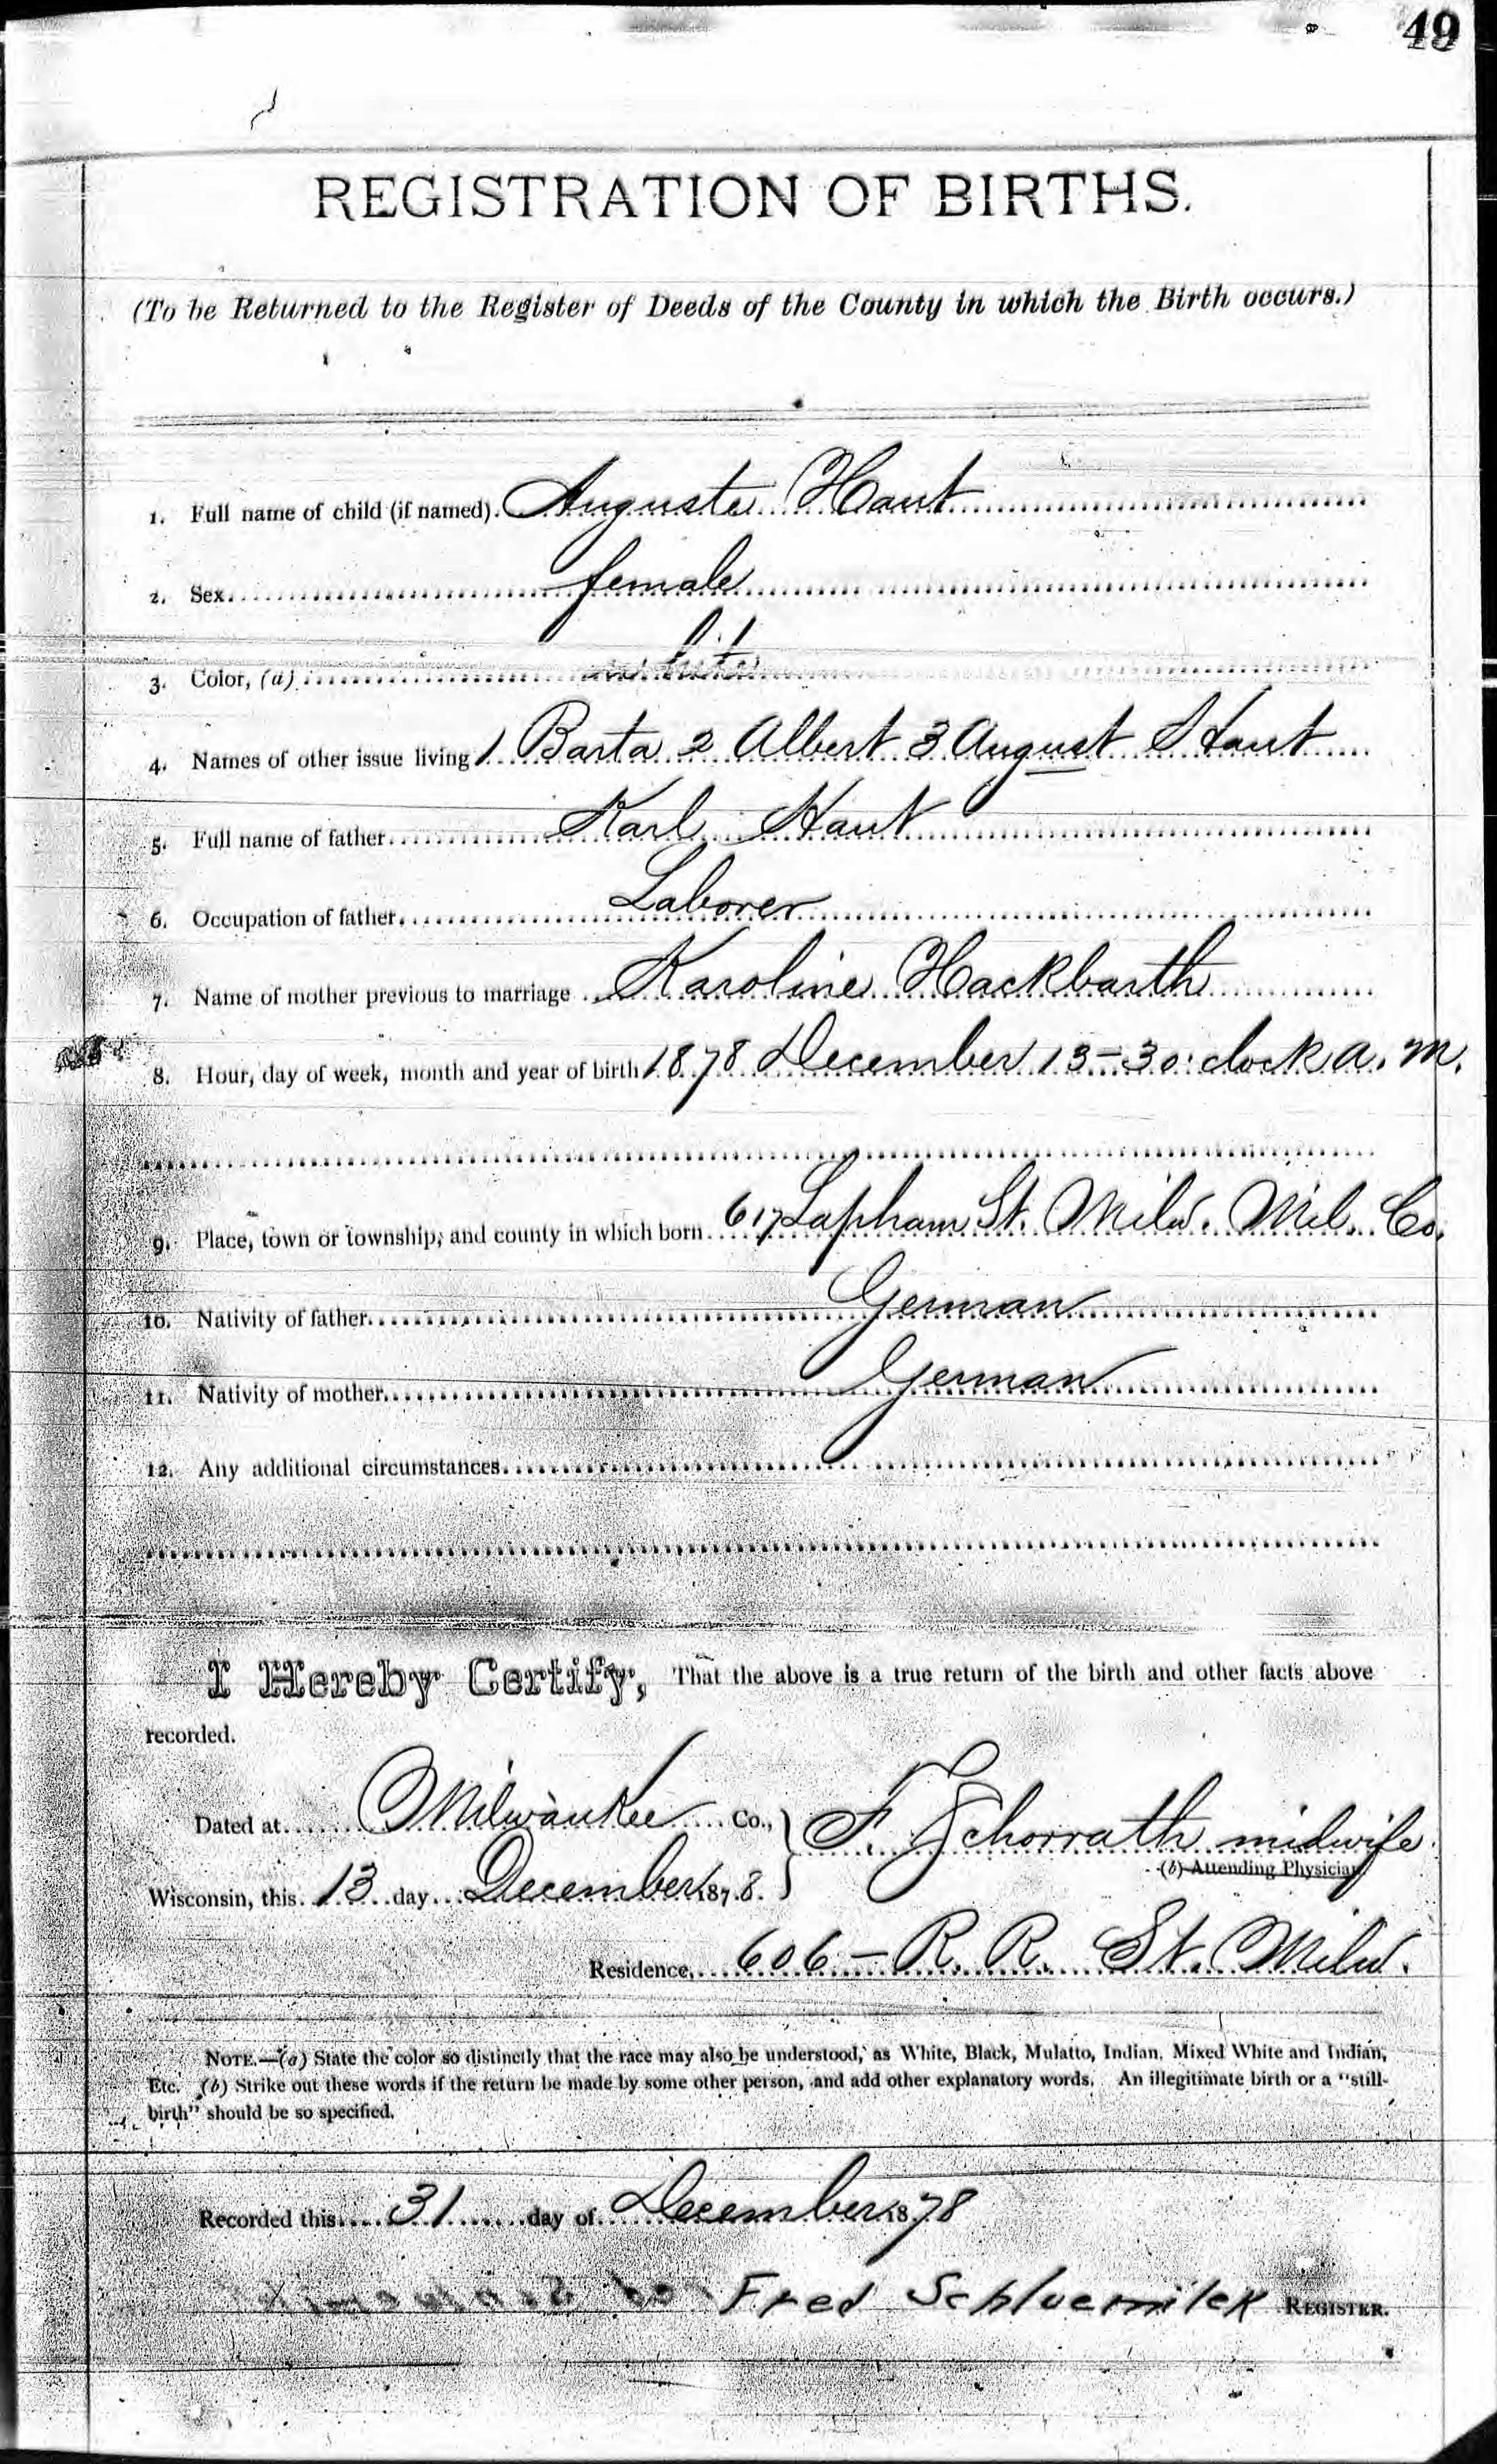 49
REGISTRATION OF BIRTHS.
(To be Returned to the Register of Deeds of the County in which the Birth occurs.)
1. Full name of child (if named). Auguste Haut
2. Sex. female
3. Color, (a) white
4. Names of other issue living 1 Barta 2 Albert 3 August Haut
5. Full name of father. Karl Haut
6. Occupation of father. Laborer
7. Name of mother previous to marriage Karoline Hackbarth
8. Hour, day of week, month and year of birth 1878 December 13-3 o'clock a. m.
9. Place, town or township, and county in which born 617 Lapham St. Milw. Mil. Co.
10. Nativity of father. German
11. Nativity of mother. German
12. Any additional circumstances.
I Hereby Certify, That the above is a true return of the birth and other facts above
recorded.
Dated at Milwaukee Co., F. Schorrath midwife
(b) Attending Physician
Wisconsin, this 13 day December 1878.
Residence, 606 - R. R. St. Milw.
NOTE.—(a) State the color so distinctly that the race may also be understood, as White, Black, Mulatto, Indian, Mixed White and Indian,
Etc. (b) Strike out these words if the return be made by some other person, and add other explanatory words. An illegitimate birth or a "still-
birth" should be so specified.
Recorded this 31 day of December 1878
Fred Schluemilck REGISTER.